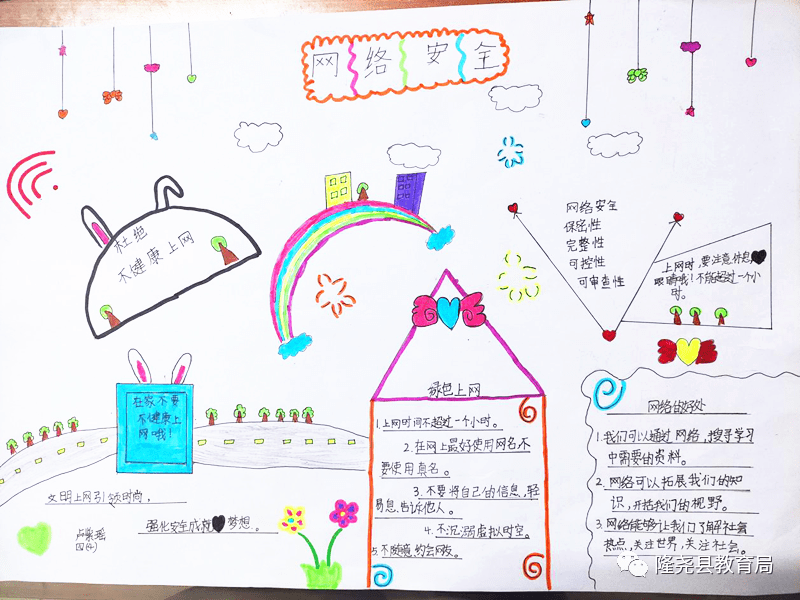 网络安全
杜绝
不健康上网
网络安全
保密性
完整性
可控性
可审查性
上网时,要注意休息
眼睛哦!不能超过一个小
时。
在家不要
不健康上
网哦!
绿色上网
1.上网时间不超过一个小时。
2.在网上最好使用网名不
要使用真名。
3.不要将自己的信息,轻
易息,告诉他人。
4.不沉溺虚拟时空。
5.不随意约会网友。
网络的好处
1.我们可以通过网络,搜寻学习
中需要的资料。
2.网络可以拓展我们的知
识,开拓我们的视野。
3.网络能够让我们了解社会
热点,关注世界,关注社会。
文明上网引领时尚,
强化安全成就梦想。
卢紫瑶
四(4)
隆尧县教育局